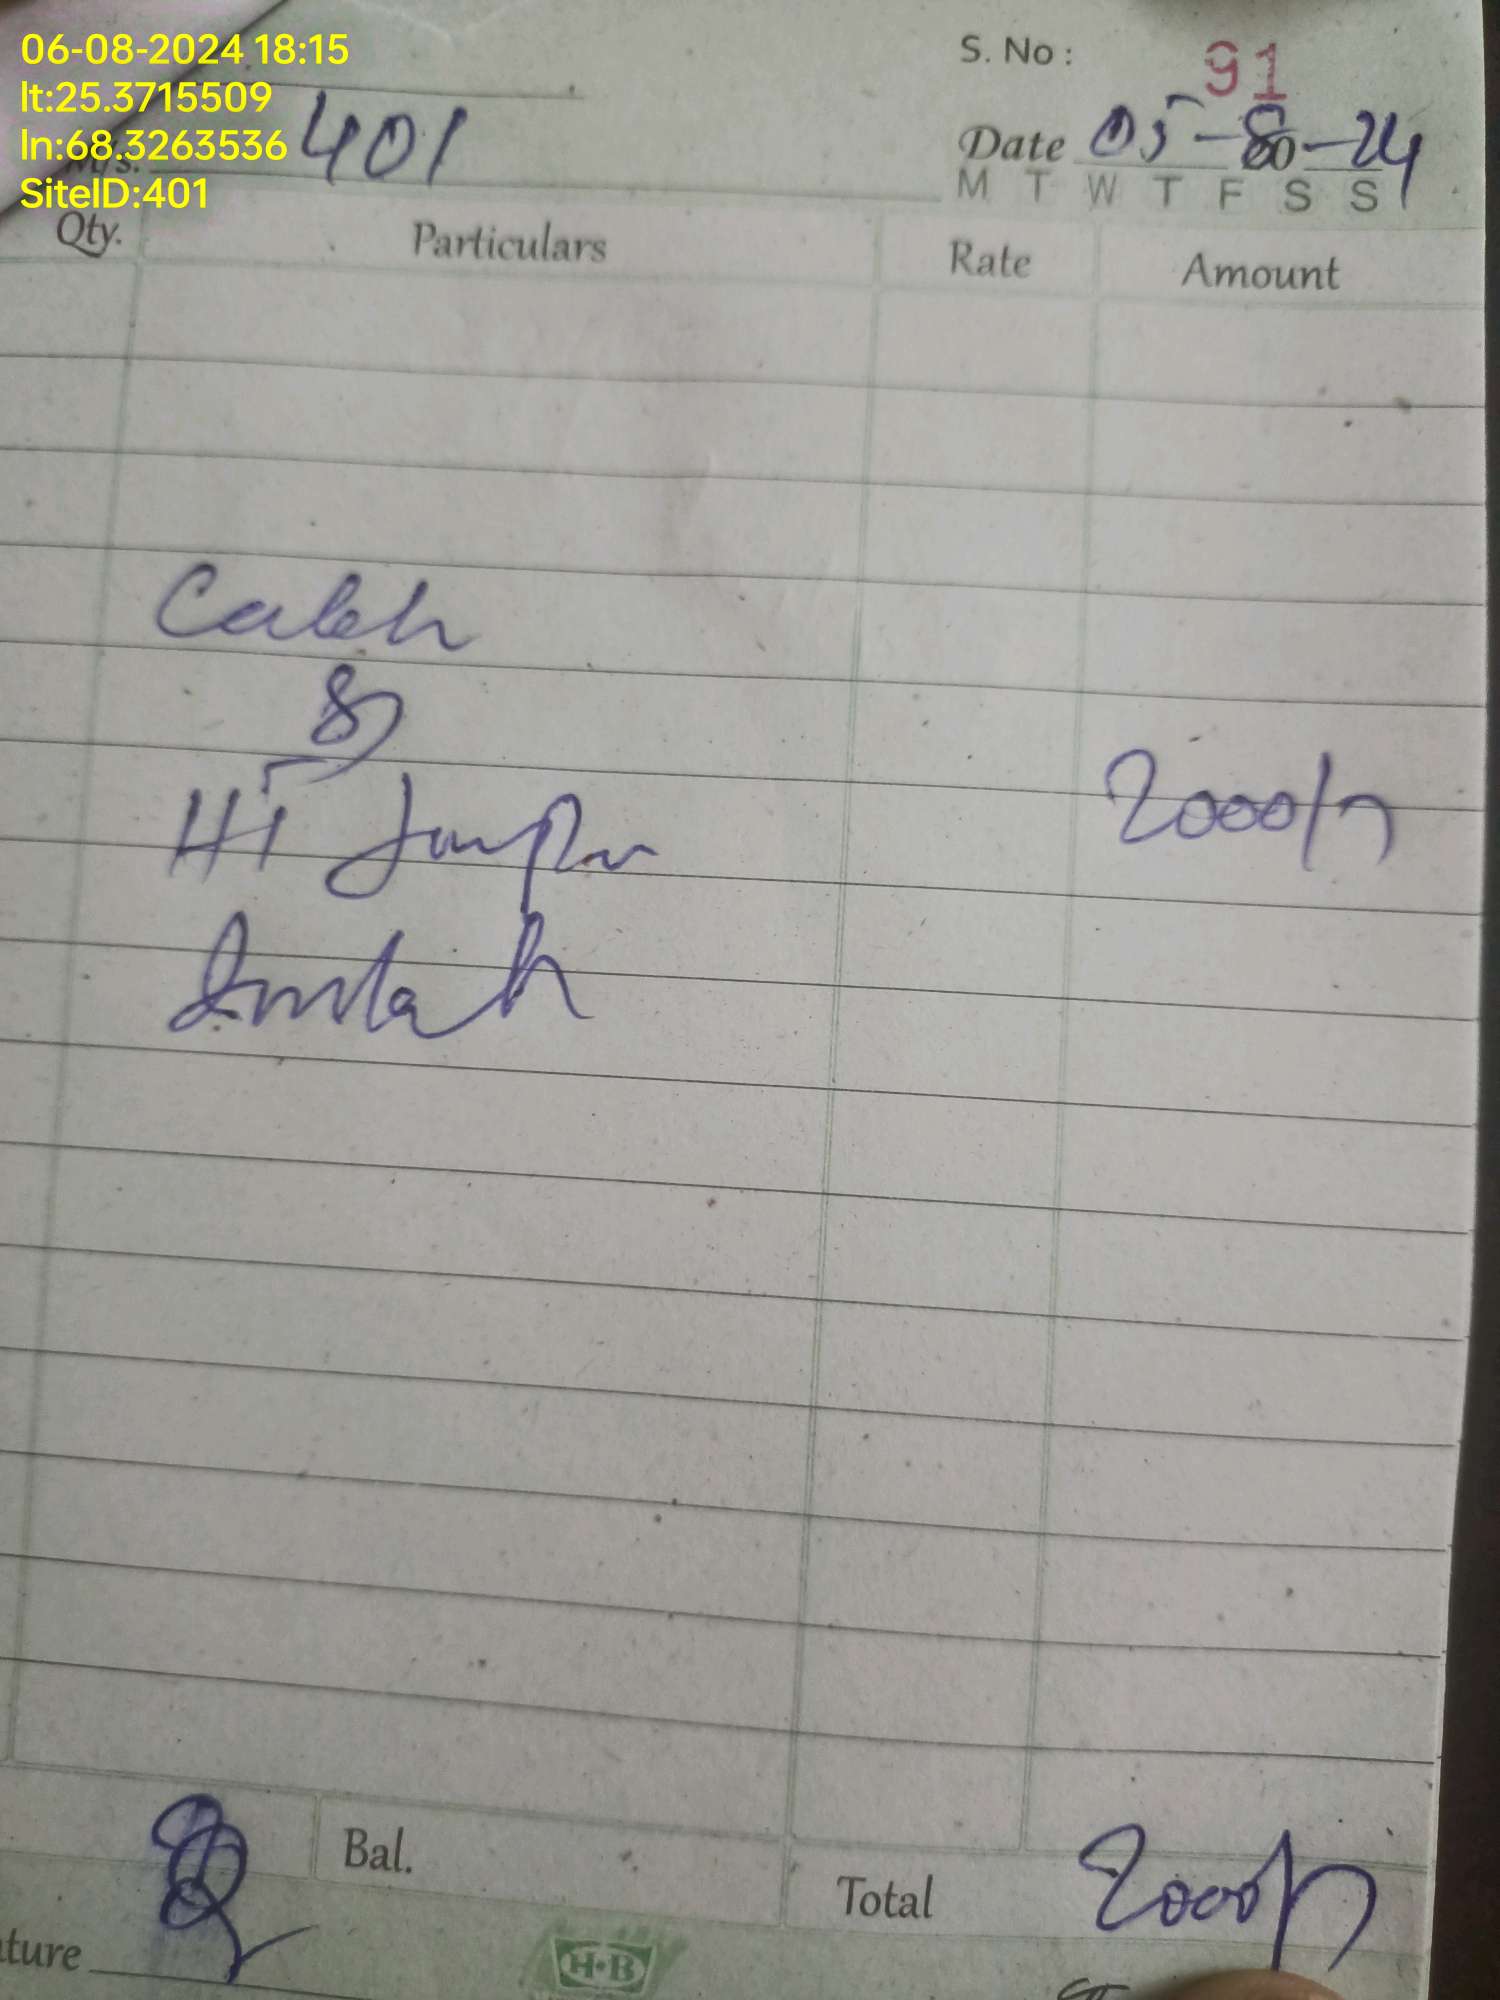 06-08-2024 18:15
lt:25.3715509
ln:68.3263536
SiteID:401
S. No : 91
M/s. 401
Date 05-80-24
M T W T F S S
Qty. Particulars Rate Amount
&
HT 2000/
Bal.
Total 2000/
ture
H·B